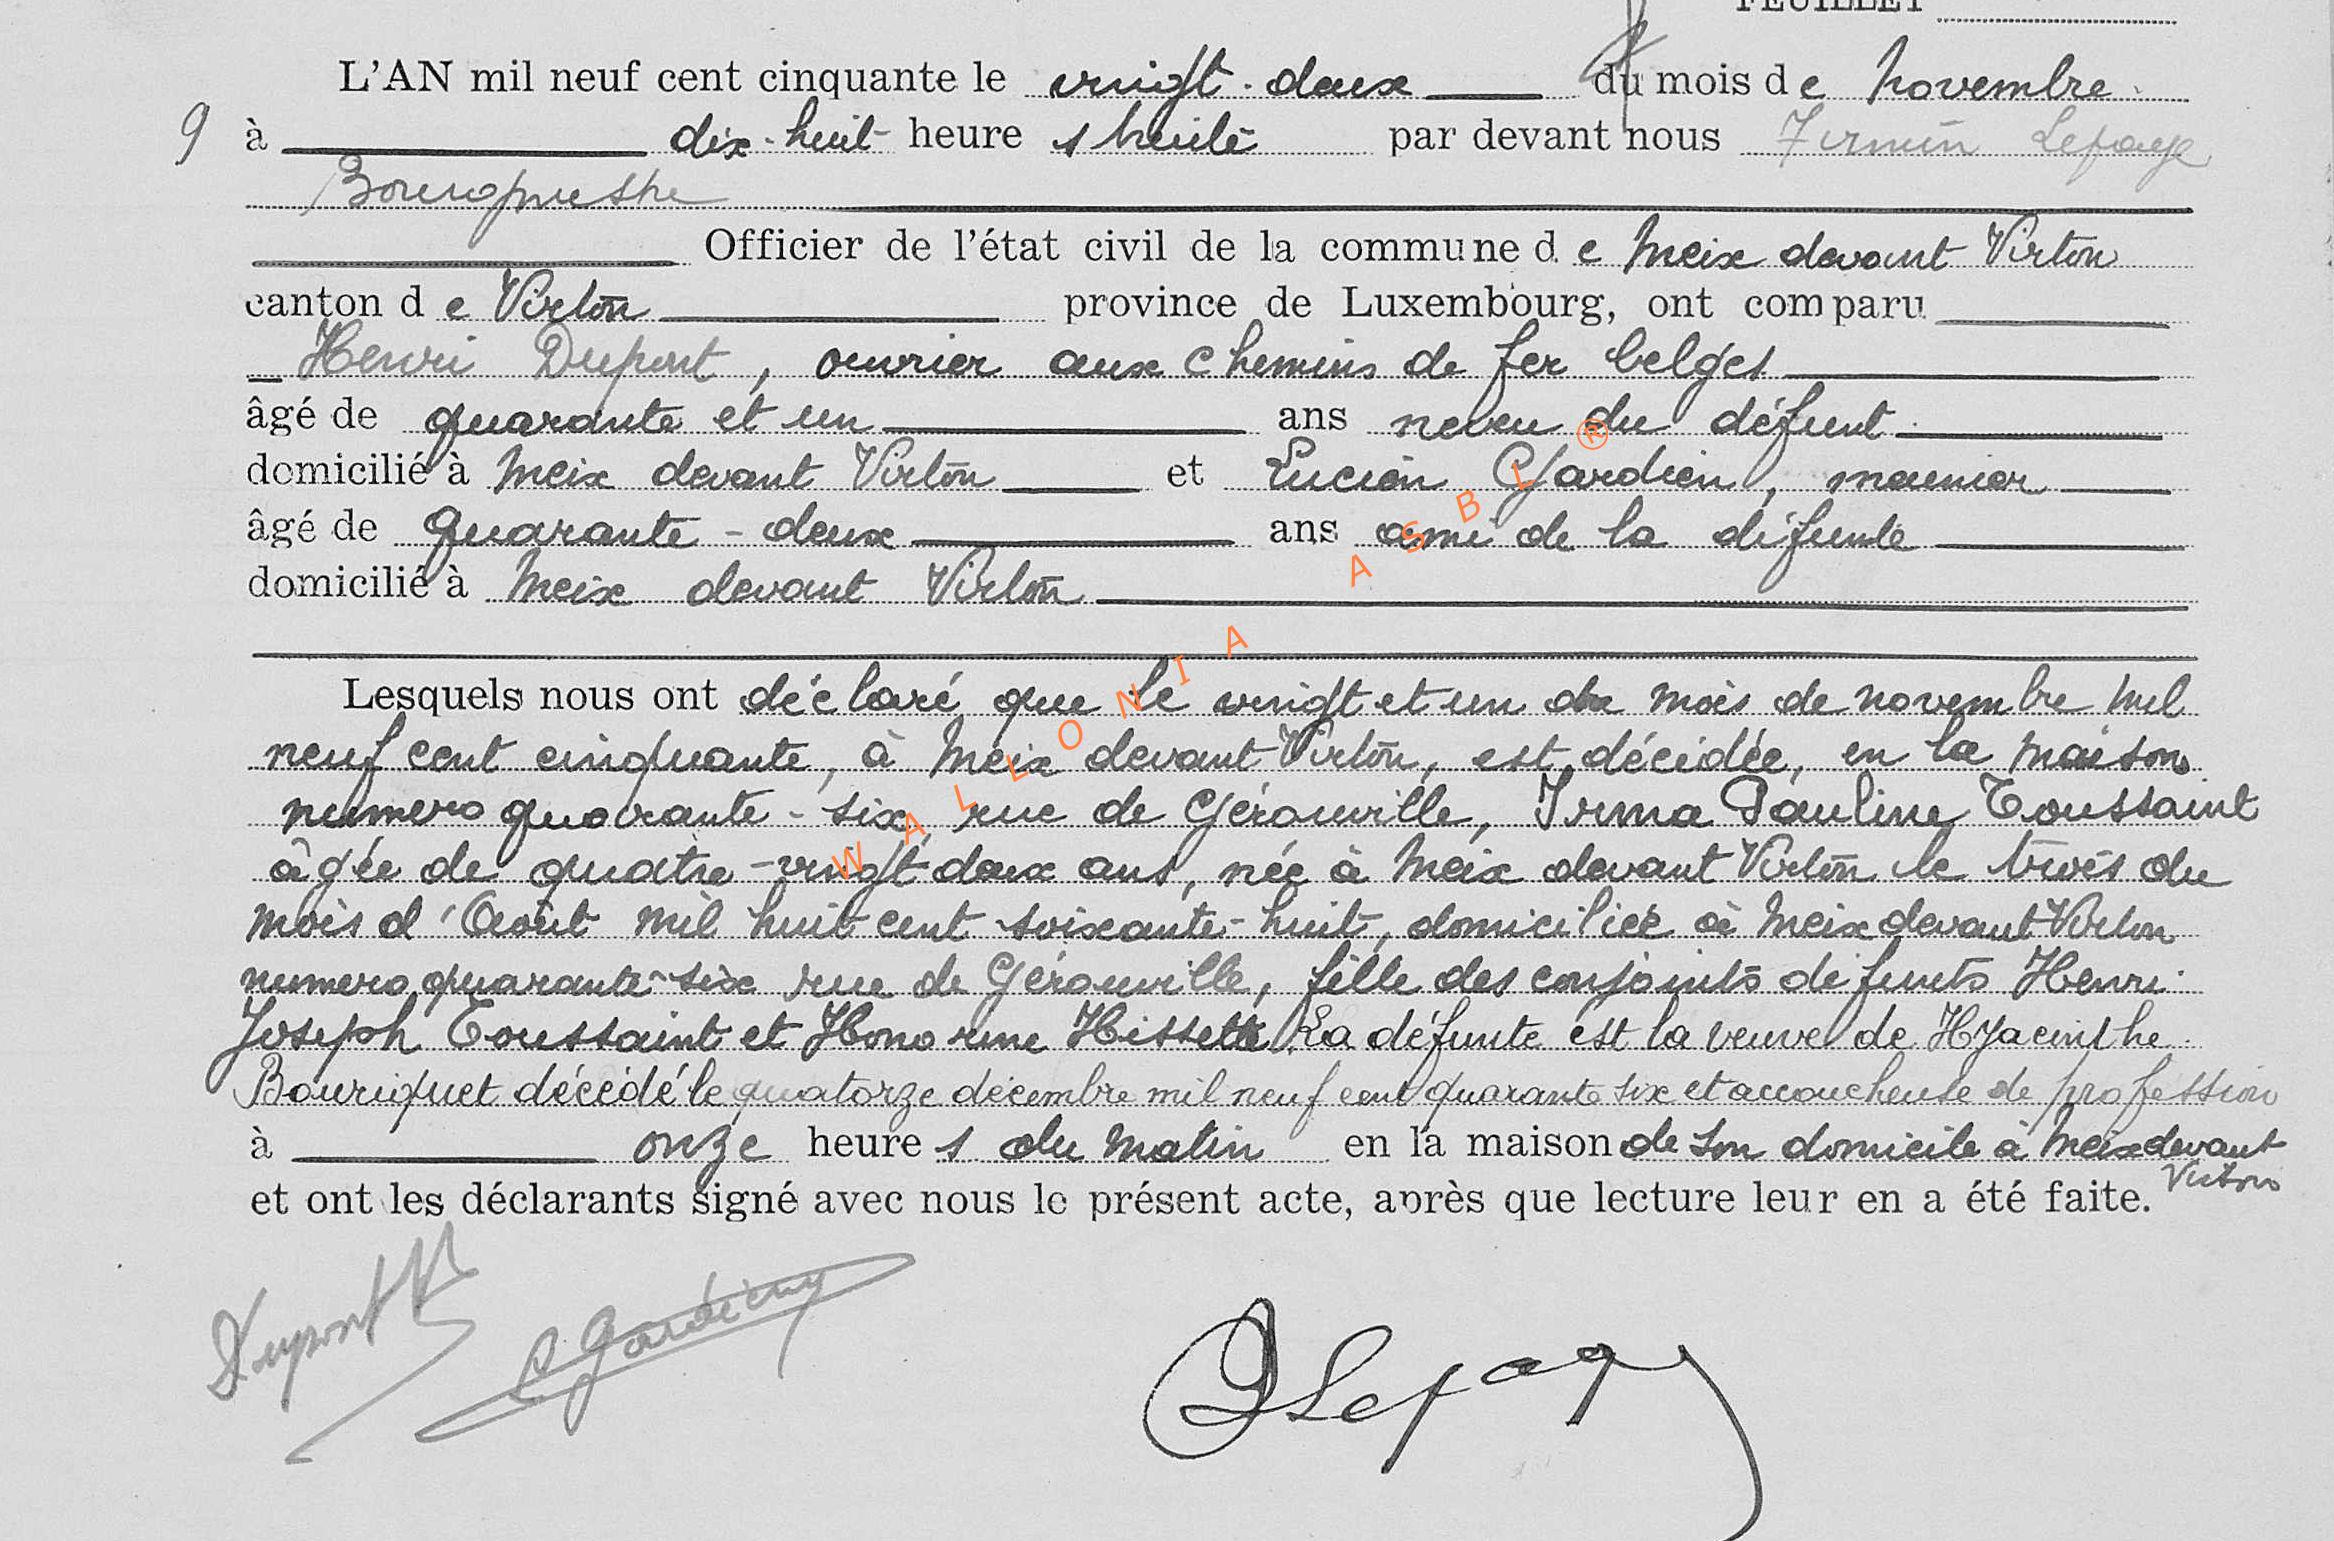 FEUILLET
L'AN mil neuf cent cinquante le vingt-deux du mois de novembre
9 à dix-huit heures par devant nous Firmin Lepage
Bourgmestre
Officier de l'état civil de la commune de Meix devant Virton
canton de Virton province de Luxembourg, ont comparu
Henri Dupont, ouvrier aux chemins de fer belges
âgé de quarante et un ans neveu du défunt
domicilié à Meix devant Virton et Lucien Gardien, meunier
âgé de quarante-deux ans ami de la défunte
domicilié à Meix devant Virton
Lesquels nous ont déclaré que le vingt et un du mois de novembre mil
neuf cent cinquante, à Meix devant Virton, est décédée, en la maison
numero quarante-six, rue de Gérouville, Irma Pauline Toussaint
âgée de quatre-vingt-deux ans, née à Meix devant Virton le trois du
mois d'Août mil huit cent soixante-huit, domiciliée à Meix devant Virton
numero quarante-six rue de Gérouville, fille des conjoints défunts Henri
Joseph Toussaint et Honorine Hissette. La défunte est la veuve de Hyacinthe
Bouriquet décédé le quatorze décembre mil neuf cent quarante six et accoucheuse de profession
à onze heures du matin en la maison de son domicile à Meix devant
Virton
et ont les déclarants signé avec nous le présent acte, après que lecture leur en a été faite.
Dupont H
Lepage
WALLONIA ASBL ®